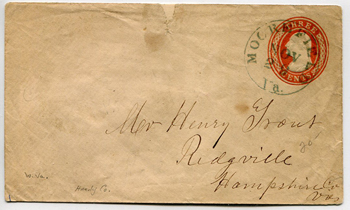 THREE
CENTS
MOOR
Va.
Mr Henry Trout
Ridgville
Hampshire Co
Va
W.Va.
Hardy Co.